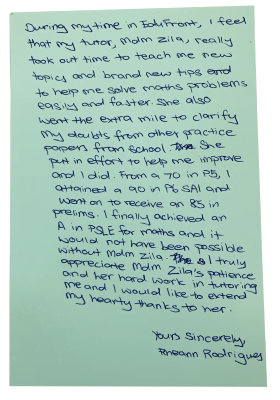 During my time in EduFront, I feel
that my tutor, Mdm Zila, really
took out time to teach me new
topics and brand new tips and
to help me solve maths problems
easily and faster. She also
went the extra mile to clarify
my doubts from other practice
papers from school. She
put in effort to help me improve
and I did. From a 70 in P5, I
attained a 90 in P6 SA1 and
went on to receive an 85 in
prelims. I finally achieved an
A in PSLE for maths and it
would not have been possible
without Mdm Zila. I truly
appreciate Mdm Zila's patience
and her hard work in tutoring
me and I would like to extend
my hearty thanks to her.
Yours Sincerely,
Rheann Rodrigues